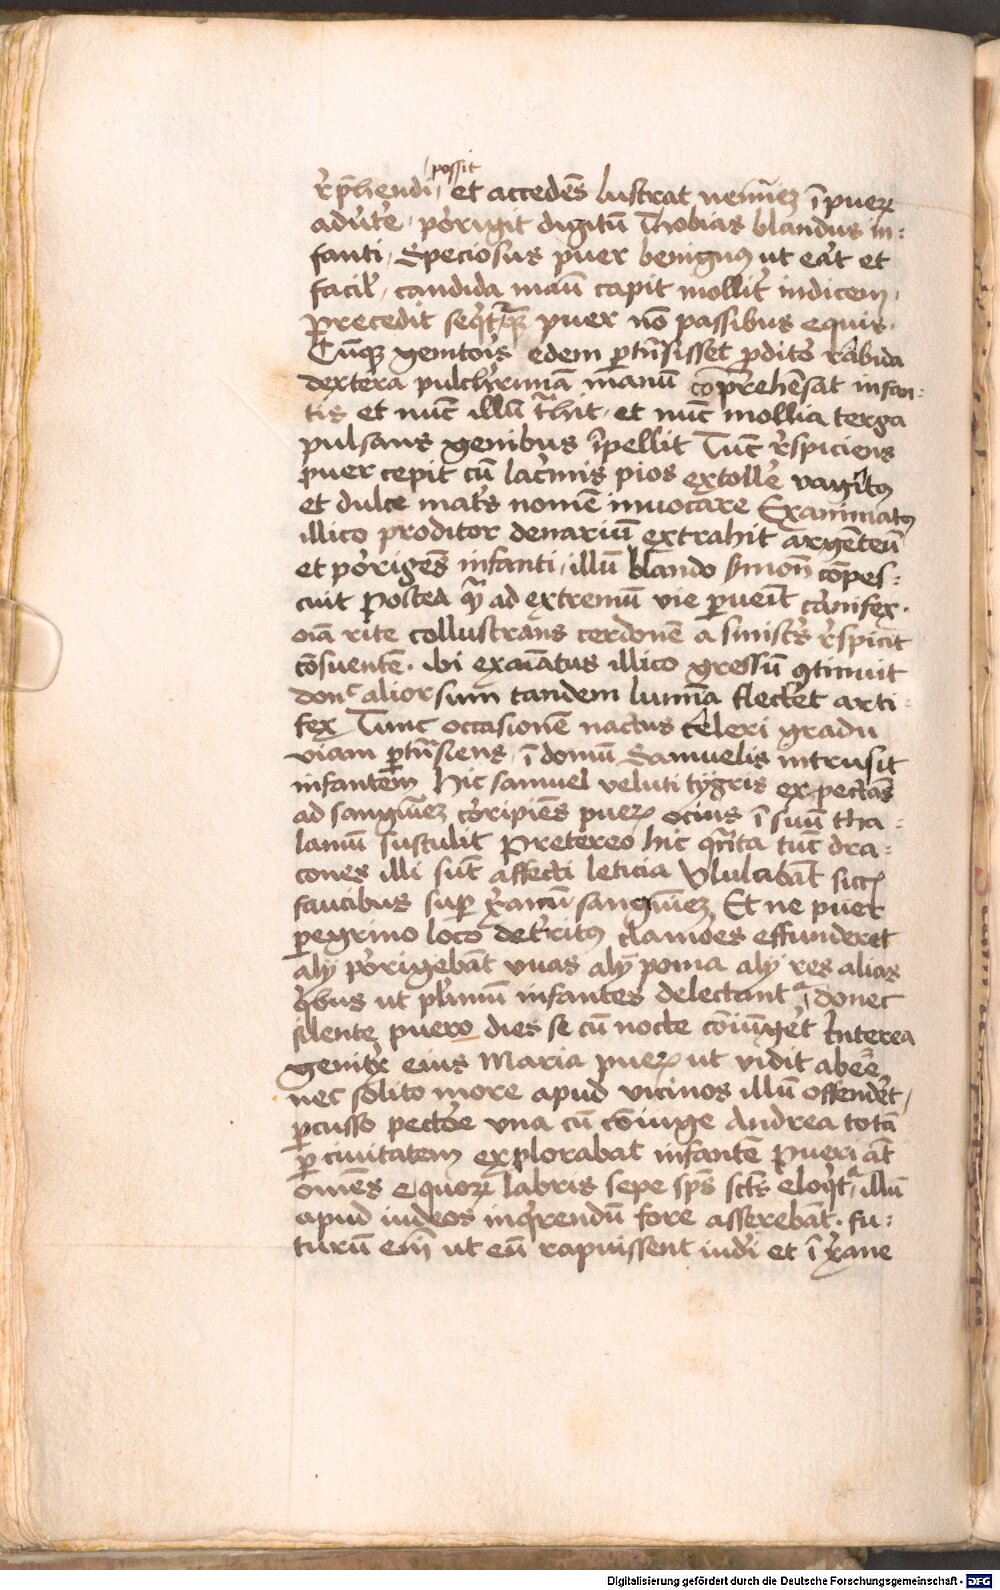 possit
r̄p̄hendi, et accedēs lustrat nemīeꝫ ī pueꝝ
adv̓te · porrigit digitū Thobias blandus in-
fanti, Speciosus puer benignꝰ ut eāt et
facil̓, candida manū capit mollit̓ indicem,
Precedit seqͥtqꝫ puer nō passibus equis.
Cūqꝫ genitoris edem ꝑtn̄sisset ꝓditor rabida
dextera pulcherrimā manū cōprehēsat infan-
tis et nūc illū tͣhit, et nūc mollia terga
pulsans genibus īpellit Tūc r̄spiciens
puer cepit cū lacͥmis pios extoll̓e vagitꝰ
et dulce matͥs nomē invocare Exanimatꝰ
illico proditor denariū extrahit argēteū
et porrigēs infanti, illū blando sermon̄ cōpes-
cuit Postea qͣ ad extremū vie ꝑveīt carnifex.
oīa rite collustrans cerdonē a sinistͥs r̄spicit
cōsuentē. ibi exaīatus illico gressū ꝯtinuit
donͨ aliorsum tandem lumīa flectet arti-
fex Tunc occasionē nactus celeri gradu
viam ꝑtn̄siens, ī domū Samuelis intrusit
infantem Hic samuel veluti tygris expectās
ad sanguīeꝫ corripiēs pueꝝ ocius ī suū tha-
lamū sustulit Pretereo hic qͣnta tūc dra-
cones illi sūt affecti leticia Ululabāt siccꝭ
faucibus suꝑ x̄ianū sanguīeꝫ Et ne puer
ꝑegrino loco det̓ritꝰ clamores effunderet
alij porrigebāt uvas alij poma alij res alias
qͥbus ut pl̓imū infantes delectantͬ, donec
silente puero dies se cū nocte cōiūgēt Interea
genitͥx eius Maria pueꝝ ut vidit abeē
nec solito more apud vicinos illū offendēt,
ꝑcusso pectore una cū cōiuge Andrea totā
ꝑ civitatem explorabat infantē Pueri āt
omēs e quoꝝ labris sepe sp̄s sctͥs eloqͥtͬ, illū
apud iudeos inqͥrendū fore asserebāt. fu-
turū em̄ ut eū rapuissent iudei et ī x̄iane